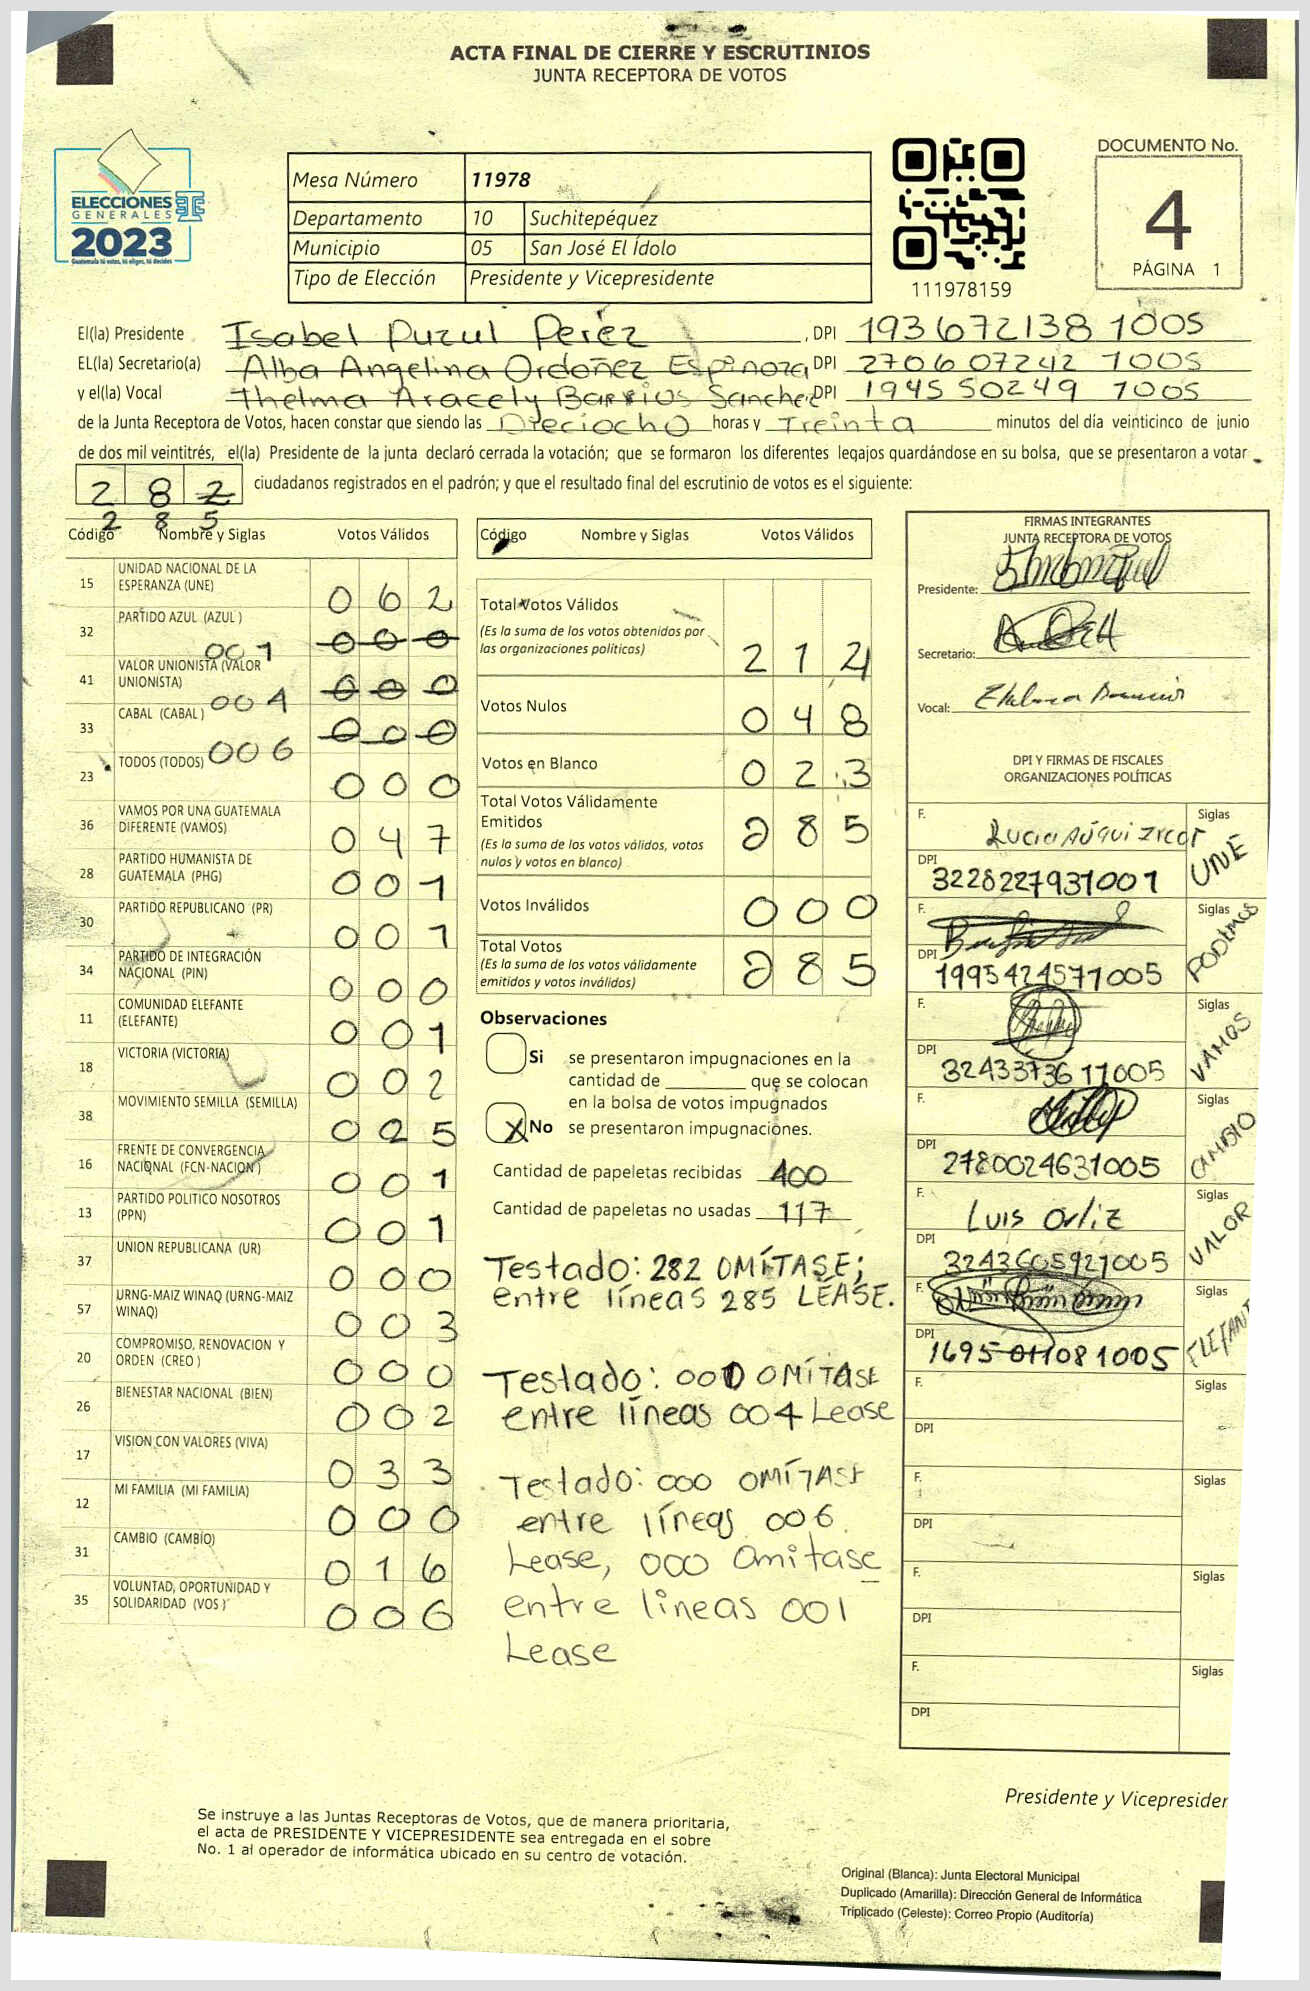 ACTA FINAL DE CIERRE Y ESCRUTINIOS
JUNTA RECEPTORA DE VOTOS
ELECCIONES
GENERALES
2023
Guatemala tú votas, tú eliges, tú decides
Mesa Número 11978
Departamento 10 Suchitepéquez
Municipio 05 San José El Ídolo
Tipo de Elección Presidente y Vicepresidente
111978159
DOCUMENTO No.
4
PÁGINA 1
El(la) Presidente Isabel Puzul Perez, DPI 193672138 1005
EL(la) Secretario(a) Alba Angelina Ordoñez Espinoza DPI 270607242 1005
y el(la) Vocal Thelma Aracely Barrios Sanchez DPI 194550249 1005
de la Junta Receptora de Votos, hacen constar que siendo las Dieciocho horas y Treinta minutos del día veinticinco de junio
de dos mil veintitrés, el(la) Presidente de la junta declaró cerrada la votación; que se formaron los diferentes legajos quardándose en su bolsa, que se presentaron a votar
2 8 2 ciudadanos registrados en el padrón; y que el resultado final del escrutinio de votos es el siguiente:
2 8 5
Código Nombre y Siglas Votos Válidos
15 UNIDAD NACIONAL DE LA ESPERANZA (UNE) 0 6 2
32 PARTIDO AZUL (AZUL ) 001 0 0 0
41 VALOR UNIONISTA (VALOR UNIONISTA) 004 0 0 0
33 CABAL (CABAL ) 006 0 0 0
23 TODOS (TODOS) 0 0 0
36 VAMOS POR UNA GUATEMALA DIFERENTE (VAMOS) 0 4 7
28 PARTIDO HUMANISTA DE GUATEMALA (PHG) 0 0 1
30 PARTIDO REPUBLICANO (PR) 0 0 1
34 PARTIDO DE INTEGRACIÓN NACIONAL (PIN) 0 0 0
11 COMUNIDAD ELEFANTE (ELEFANTE) 0 0 1
18 VICTORIA (VICTORIA) 0 0 2
38 MOVIMIENTO SEMILLA (SEMILLA) 0 2 5
16 FRENTE DE CONVERGENCIA NACIONAL (FCN-NACION ) 0 0 1
13 PARTIDO POLITICO NOSOTROS (PPN) 0 0 1
37 UNION REPUBLICANA (UR) 0 0 0
57 URNG-MAIZ WINAQ (URNG-MAIZ WINAQ) 0 0 3
20 COMPROMISO, RENOVACION Y ORDEN (CREO ) 0 0 0
26 BIENESTAR NACIONAL (BIEN) 0 0 2
17 VISION CON VALORES (VIVA) 0 3 3
12 MI FAMILIA (MI FAMILIA) 0 0 0
31 CAMBIO (CAMBIO) 0 1 6
35 VOLUNTAD, OPORTUNIDAD Y SOLIDARIDAD (VOS ) 0 0 6
Código Nombre y Siglas Votos Válidos
Total Votos Válidos
(Es la suma de los votos obtenidos por
las organizaciones políticas) 2 1 4
Votos Nulos 0 4 8
Votos en Blanco 0 2 3
Total Votos Válidamente
Emitidos 2 8 5
(Es la suma de los votos válidos, votos
nulos y votos en blanco)
Votos Inválidos 0 0 0
Total Votos
(Es la suma de los votos válidamente
emitidos y votos inválidos) 2 8 5
Observaciones
Si se presentaron impugnaciones en la
cantidad de ________ que se colocan
en la bolsa de votos impugnados
X No se presentaron impugnaciones.
Cantidad de papeletas recibidas 400
Cantidad de papeletas no usadas 117
Testado: 282 OMÍTASE;
entre líneas 285 LÉASE.
Testado: 000 OMÍTASE
entre líneas 004 Lease
Testado: 000 OMÍTASE
entre líneas 006
Lease, 000 Omitase
entre lineas 001
Lease
FIRMAS INTEGRANTES
JUNTA RECEPTORA DE VOTOS
Presidente:
Secretario:
Vocal:
DPI Y FIRMAS DE FISCALES
ORGANIZACIONES POLÍTICAS
F. Siglas UNE
DPI 3228227931001
F. Siglas PODEMOS
DPI 1995424571005
F. Siglas VAMOS
DPI 3243373611005
F. Siglas CAMBIO
DPI 2780024631005
F. Luis Orliz Siglas VALOR
DPI 3243605921005
F. Siglas ELEFANT
DPI 1695 011081005
F. Siglas
DPI
F. Siglas
DPI
F. Siglas
DPI
F. Siglas
DPI
Presidente y Vicepresiden
Se instruye a las Juntas Receptoras de Votos, que de manera prioritaria,
el acta de PRESIDENTE Y VICEPRESIDENTE sea entregada en el sobre
No. 1 al operador de informática ubicado en su centro de votación.
Original (Blanca): Junta Electoral Municipal
Duplicado (Amarilla): Dirección General de Informática
Triplicado (Celeste): Correo Propio (Auditoría)